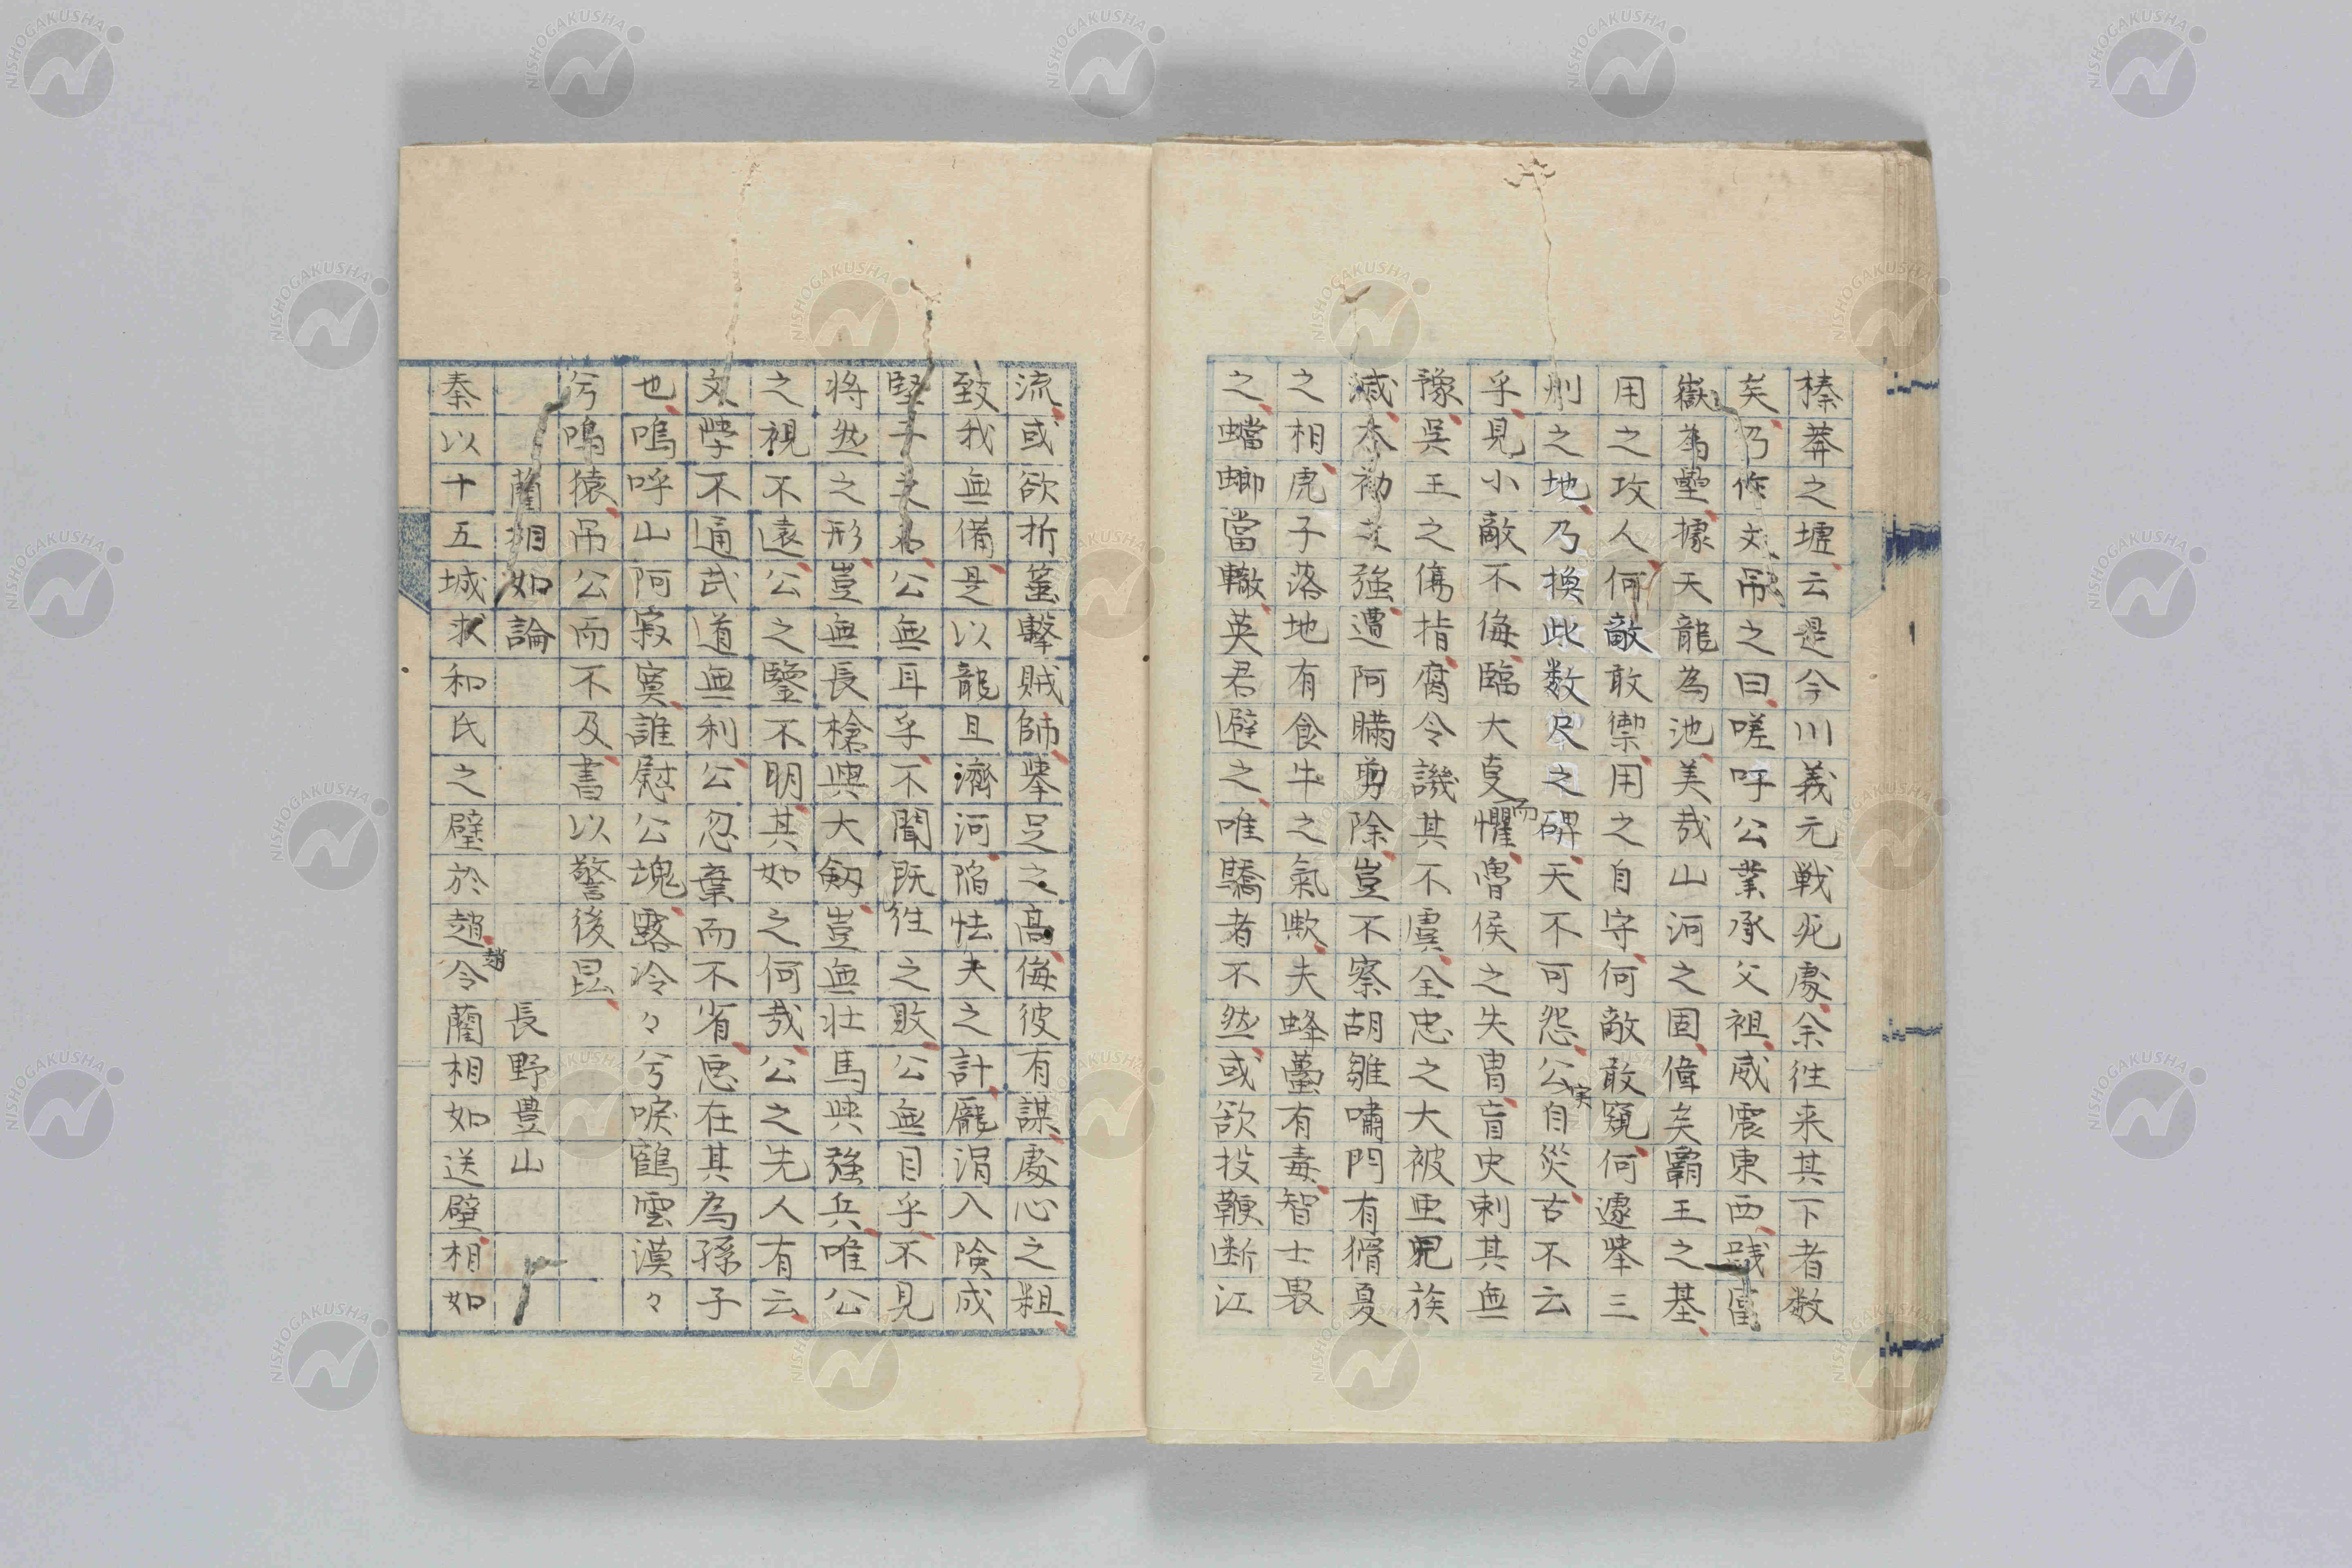 榛莽之墟云是今川義元戦死處余往来其下者数
矣乃作文吊之曰嗟呼公業承父祖威震東西富
嶽為壘據天龍為池美哉山河之固偉矣霸王之基
用之攻人何敵敢禦用之自守何敵敢窺何遽挙三
刖之地乃換此数尺之碑天不可怨公実自災古不云
乎見小敵不侮臨大受而懼魯侯之失冑盲史刺其無
豫吳王之傷指腐令譏其不虞全忠之大被亜児族
滅本初之強遭阿瞞剪除豈不察胡雛嘯門有猾夏
之相虎子落地有食牛之氣歟夫蜂蠆有毒智士畏
之蟷螂當轍英君避之唯驕者不然或欲投鞭断江
流或欲折箠擊賊師挙足之高侮彼有謀處心之粗
致我無備是以龍且濟河陥怯夫之計龐涓入険成
竪子之名公無耳乎不聞既往之敗公無目乎不見
将然之形豈無長槍與大劔豈無壮馬與強兵唯公
之視不遠公之鑒不明其如之何哉公之先人有云
文学不通武道無利公忽棄而不省忌在其為孫子
也嗚呼山阿寂寞誰慰公塊露冷々兮唳鶴雲漠々
兮鳴猿吊公而不及書以警後昆
藺相如論
長野豊山
秦以十五城求和氏之璧於趙趙令藺相如送璧相如